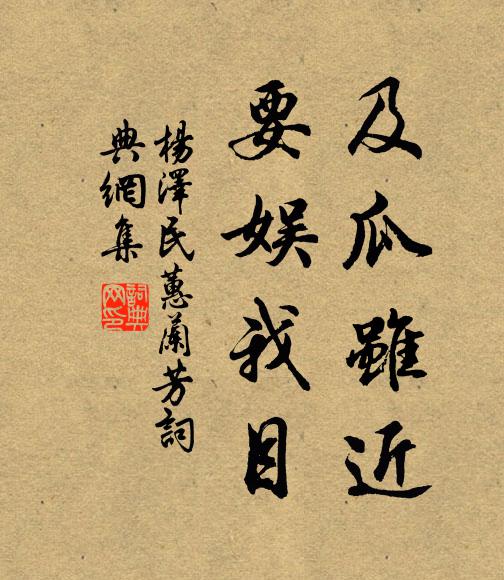 及瓜雖近
要娛我目
楊澤民蕙蘭芳詞
典網集
詞典網印